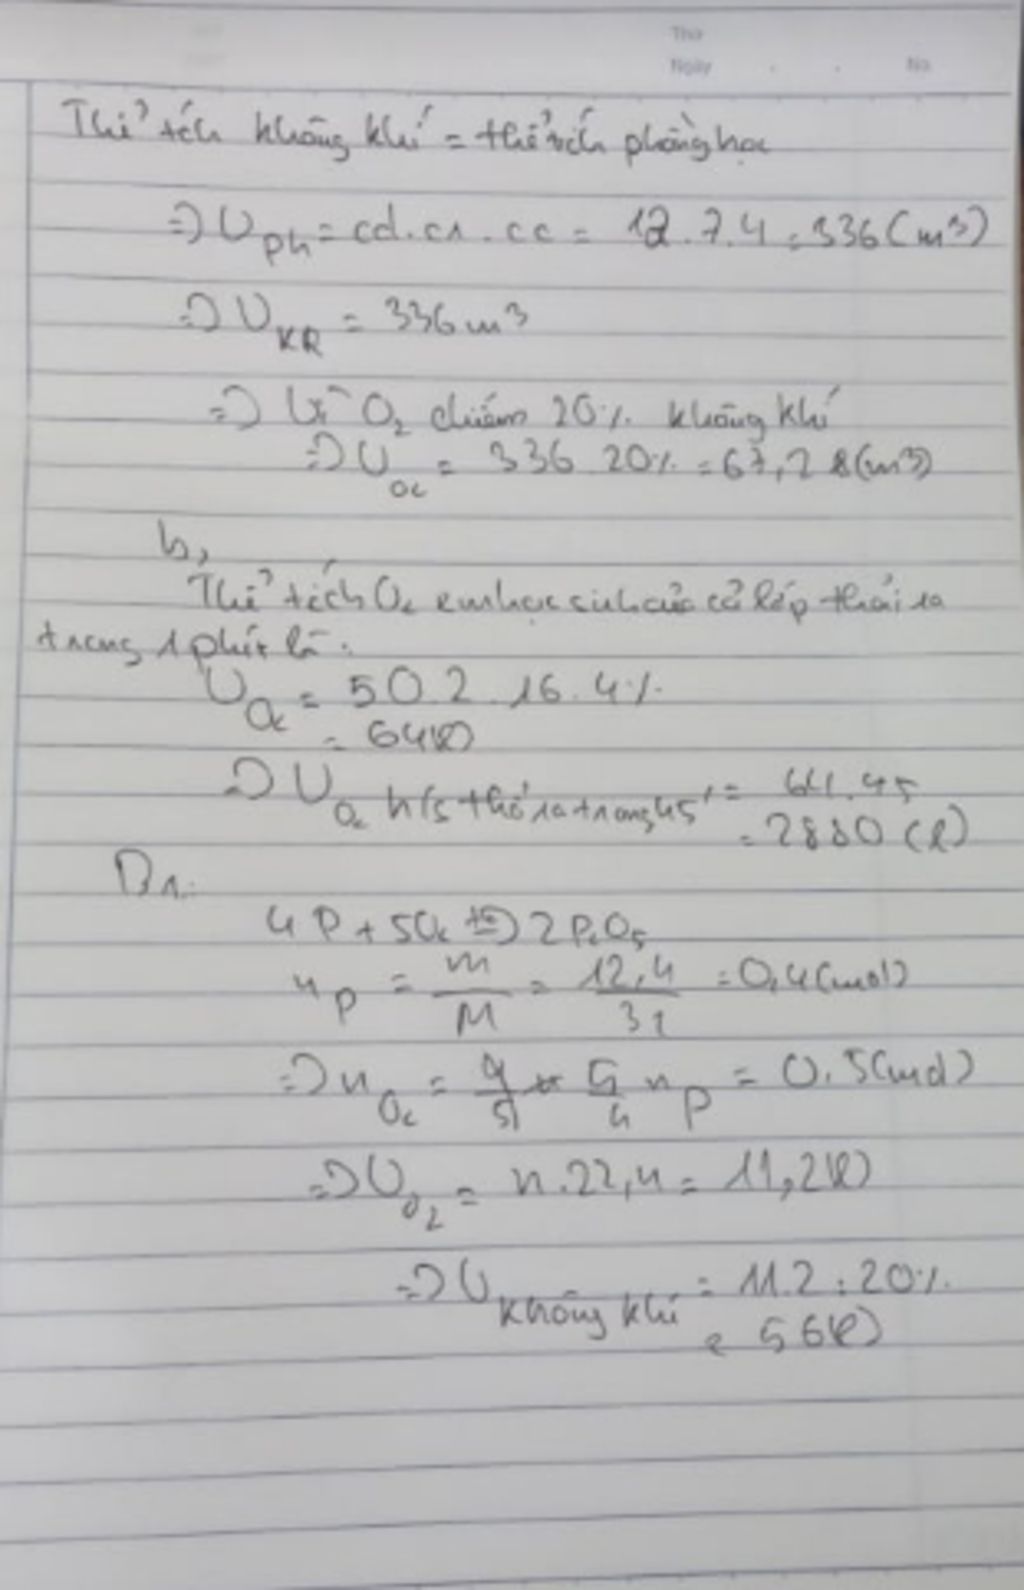 Thứ
Ngày . . No.
Thể tích không khí = thể tích phòng học
=> V ph = cd.cr.cc = 12.7.4 = 336 (m3)
=> V KK = 336 m3
=> Vì O2 chiếm 20% không khí
=> V O2 = 336 20% = 67,2 (m3)
b,
Thể tích O2 em học sinh của cả lớp thải ra
trong 1 phút là:
V O2 = 50.2 16.4%
= 64 (l)
=> V O2 h/s thở ra trong 45' = 64.45
= 2880 (l)
B1:
4P + 5O2 to=> 2P2O5
n P = m/M = 12,4/31 = 0,4 (mol)
=> n O2 = 5/4 n P = 0.5 (mol)
=> V O2 = n.22,4 = 11,2 (l)
=> V không khí = 11.2 : 20%
= 56 (l)